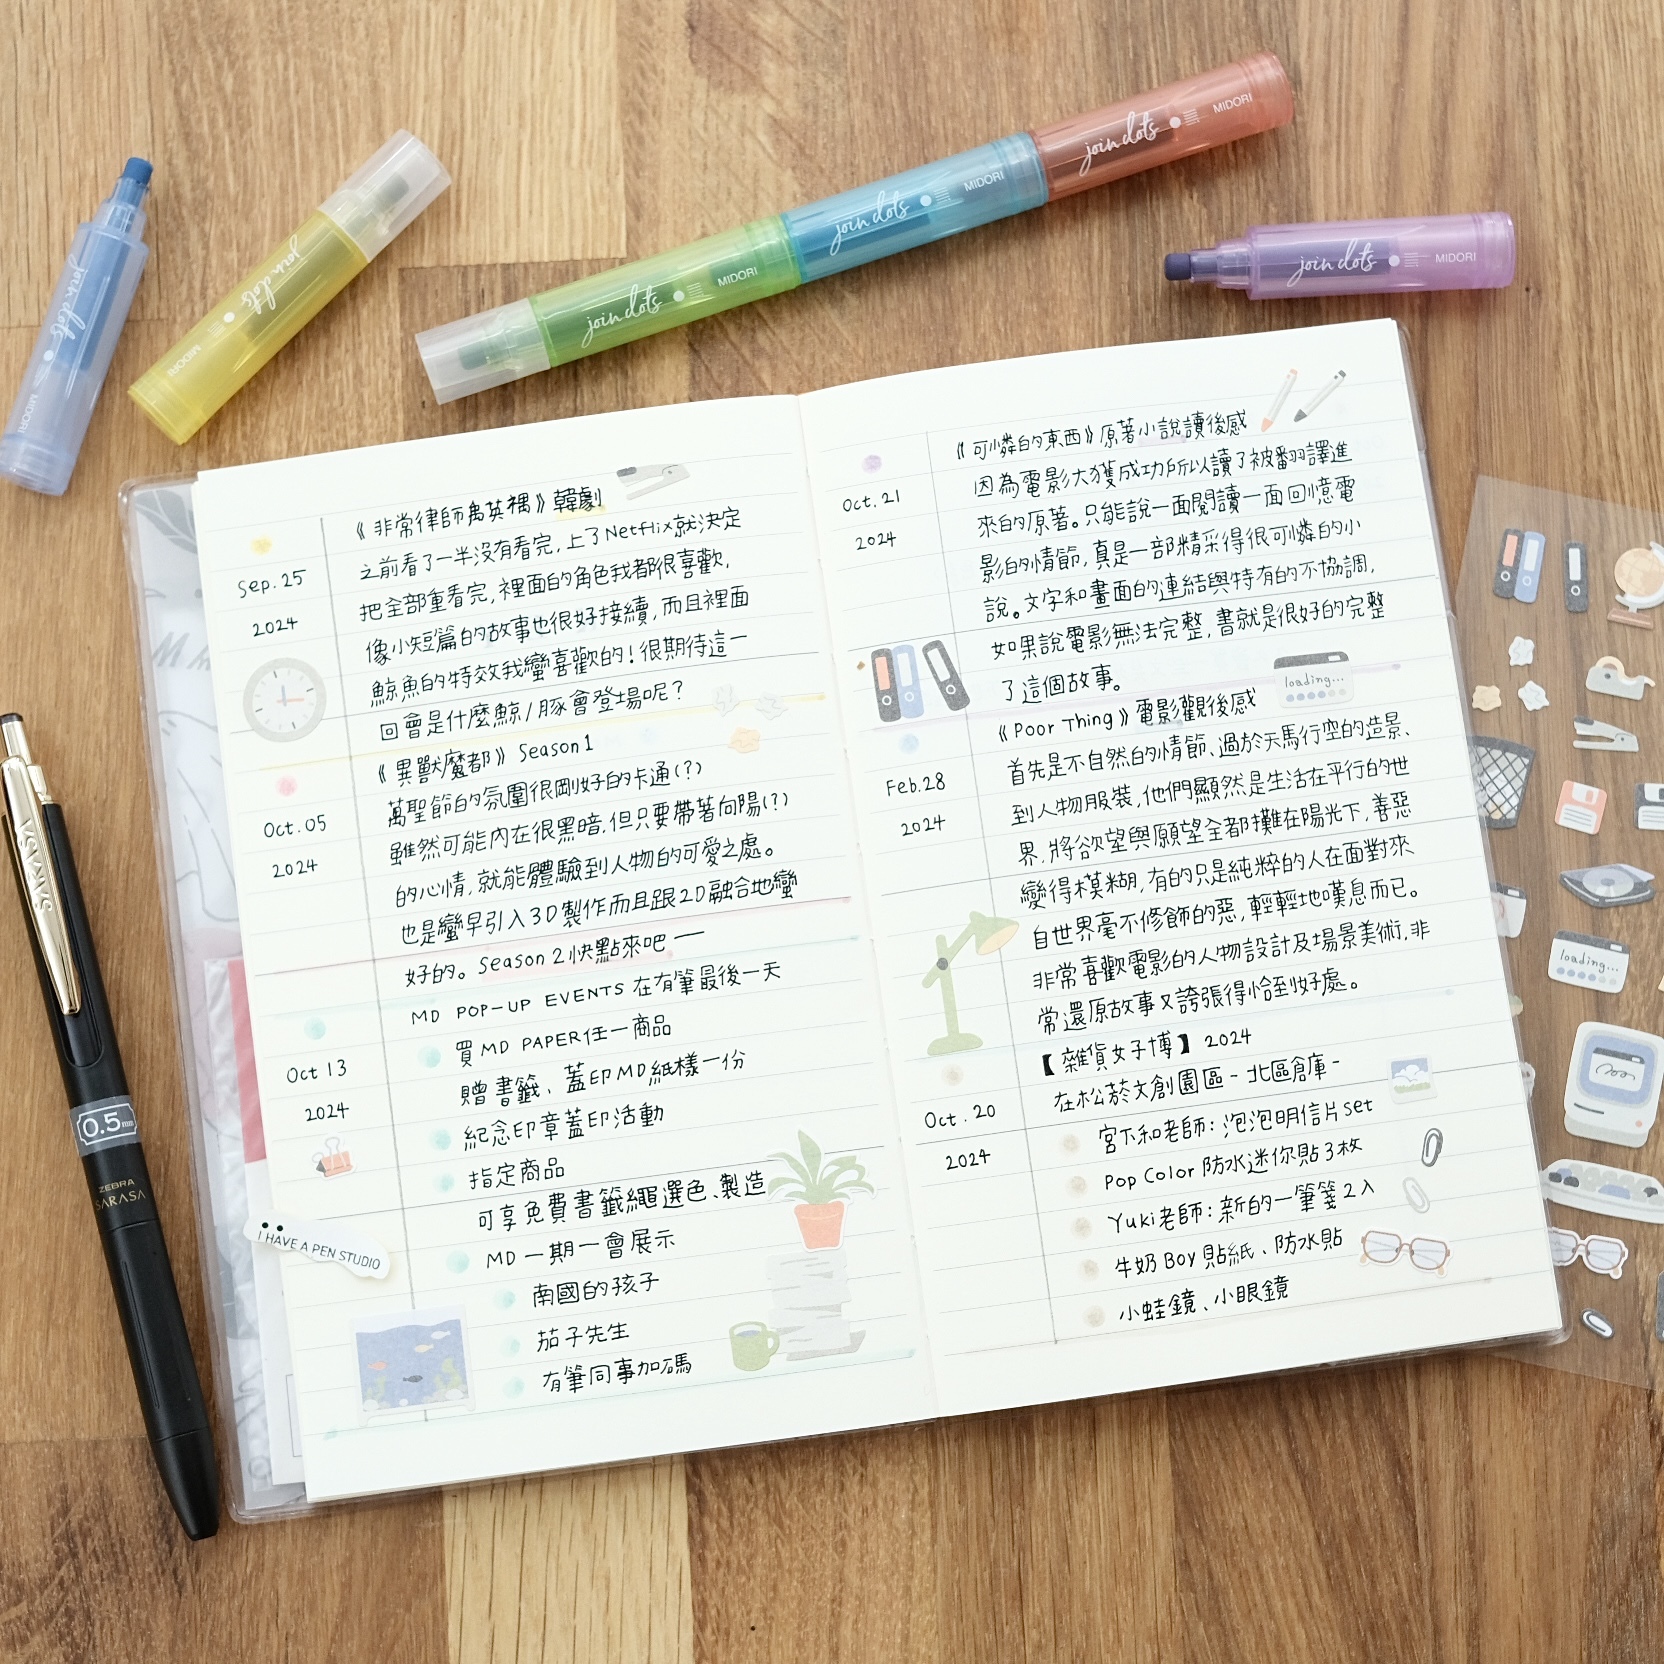 join dots MIDORI
join dots MIDORI
join dots MIDORI
join dots MIDORI
join dots MIDORI
join dots MIDORI
《非常律師禹英禑》韓劇
Sep. 25
2024
之前看了一半沒有看完,上了Netflix就決定
把全部重看完,裡面的角色我都很喜歡,
像小短篇的故事也很好接續,而且裡面
鯨魚的特效我蠻喜歡的!很期待這一
回會是什麼鯨/豚會登場呢?
《異獸魔都》Season 1
Oct. 05
2024
萬聖節的氛圍很剛好的卡通(?)
雖然可能內在很黑暗,但只要帶著向陽(?)
的心情,就能體驗到人物的可愛之處。
也是蠻早引入3D製作而且跟2D融合地蠻
好的。Season 2快點來吧——
MD POP-UP EVENTS 在有筆最後一天
Oct 13
2024
買MD PAPER任一商品
贈書籤、蓋印MD紙樣一份
紀念印章蓋印活動
指定商品
可享免費書籤繩選色、製造
MD 一期一會展示
南國的孩子
茄子先生
有筆同事加碼
I HAVE A PEN STUDIO
《可憐的東西》原著小說讀後感
Oct. 21
2024
因為電影大獲成功所以讀了被翻譯進
來的原著。只能說一面閱讀一面回憶電
影的情節,真是一部精采得很可憐的小
說。文字和畫面的連結與特有的不協調,
如果說電影無法完整,書就是很好的完整
了這個故事。
loading...
《Poor Thing》電影觀後感
Feb. 28
2024
首先是不自然的情節、過於天馬行空的造景、
到人物服裝,他們顯然是生活在平行的世
界,將欲望與願望全都攤在陽光下,善惡
變得模糊,有的只是純粹的人在面對來
自世界毫不修飾的惡,輕輕地嘆息而已。
非常喜歡電影的人物設計及場景美術,非
常還原故事又誇張得恰到好處。
【雜貨女子博】2024
Oct. 20
2024
在松菸文創園區-北區倉庫-
宮下和老師:泡泡明信片set
Pop Color 防水迷你貼3枚
Yuki老師:新的一筆箋2入
牛奶Boy貼紙、防水貼
小蛙鏡、小眼鏡
loading...
SARASA
0.5mm
ZEBRA
SARASA